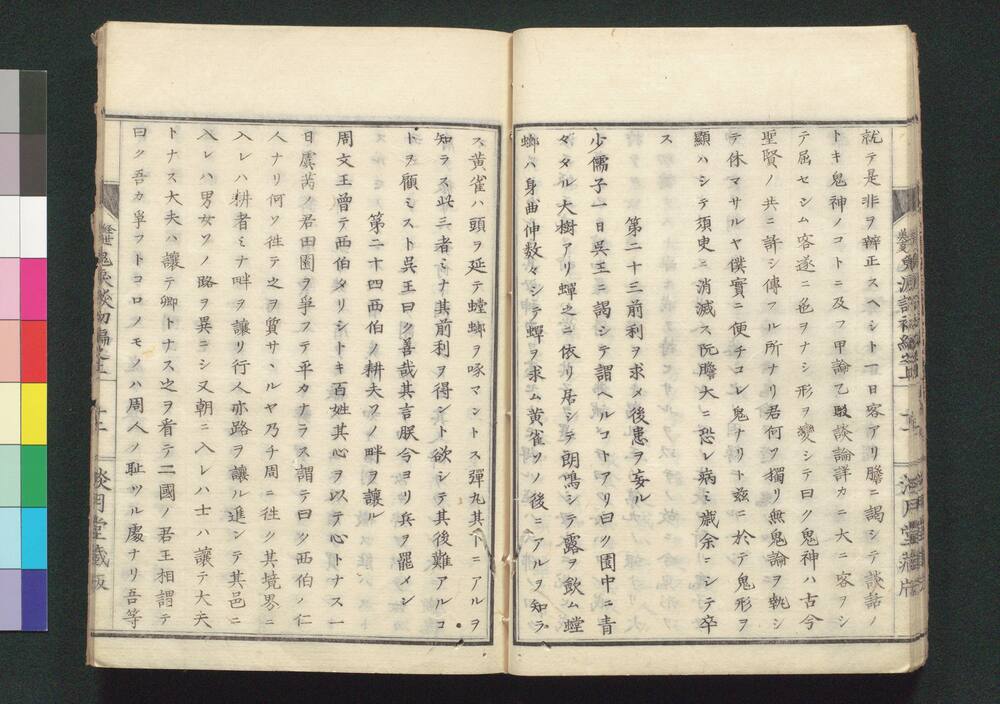 就テ是非ヲ辨正スヘシト一日客アリ瞻ニ謁シテ談話ノ
トキ鬼神ノコトニ及フ甲論乙駁談論詳カニ大ニ客ヲシ
テ屈セシム客遂ニ色ヲナシ形ヲ變シテ曰ク鬼神ハ古今
聖賢ノ共ニ許シ傳フル所ナリ君何ソ獨リ無鬼論ヲ執シ
テ休マサルヤ僕實ニ便チコレ鬼ナリト玆ニ於テ鬼形ヲ
顯ハシテ須臾ニ消滅ス阮瞻大ニ恐レ病ミ歳余ニシテ卒
ス
第二十三前利ヲ求メ後患ヲ妄ル
少儒子一日呉王ニ謁シテ謂ヘルコトアリ曰ク園中ニ青
々タル大樹アリ蟬之ニ依リ居シテ朗鳴シテ露ヲ飲ム螳
螂ハ身曲伸数々シテ蟬ヲ求ム黄雀ソノ後ニアルヲ知ラ
ス黄雀ハ頭ヲ延テ螳螂ヲ啄マントス彈丸其下ニアルヲ
知ラス此三者ミナ其前利ヲ得ント欲シテ其後難アルコ
トヲ顧ミスト呉王曰ク善哉其言朕今ヨリ兵ヲ罷メン
第二十四西伯ノ耕夫ソノ畔ヲ讓ル
周文王曾テ西伯タリシトキ百姓其心ヲ以テ心トナス一
日虞芮ノ君田園ヲ爭フテ平カナラス謂テ曰ク西伯ノ仁
人ナリ何ソ徃テ之ヲ質サヽルヤ乃チ周ニ徃ク其境界ニ
入レハ耕者ミナ畔ヲ讓リ行人亦路ヲ讓ル進ンテ其邑ニ
入レハ男女ソノ路ヲ異ニシ又朝ニ入レハ士ハ讓テ大夫
トナス大夫ハ讓テ卿トナス之ヲ看テ二國ノ君王相謂テ
曰ク吾カ爭フトコロノモノハ周人ノ耻ツル處ナリ吾等
淡月堂藏版